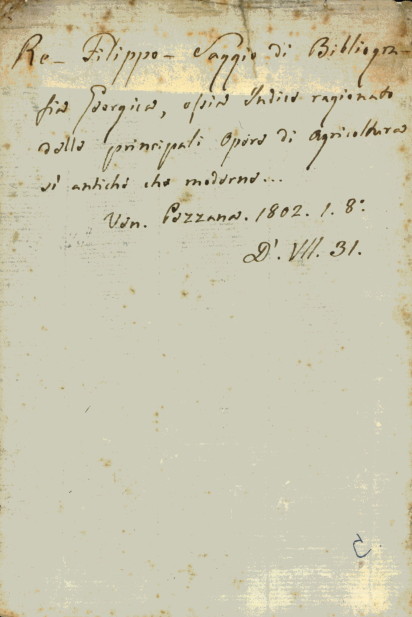 Re- Filippo- Saggio di Bibliogra-
fia Georgica, ossia Indice ragionato
delle principali Opere di Agricoltura
sì antiche che moderne...
Ven. Pezzana. 1802. 1. 8°.
D'. VII. 31.
5